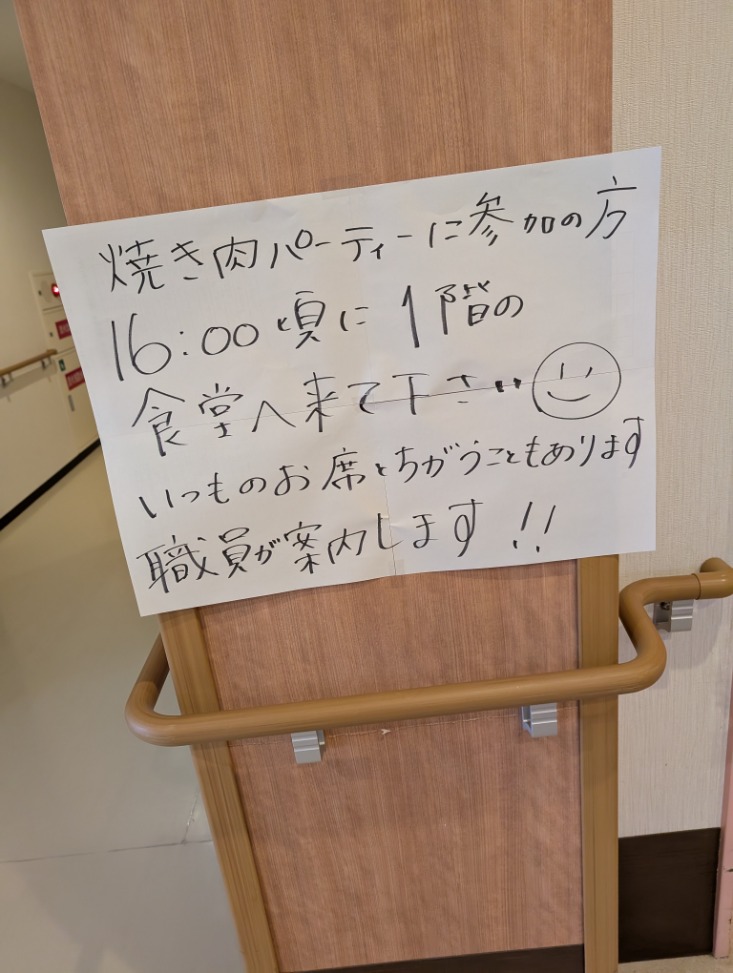 焼き肉パーティーに参加の方
16:00頃に1階の
食堂へ来て下さい
いつものお席とちがうこともあります
職員が案内します!!